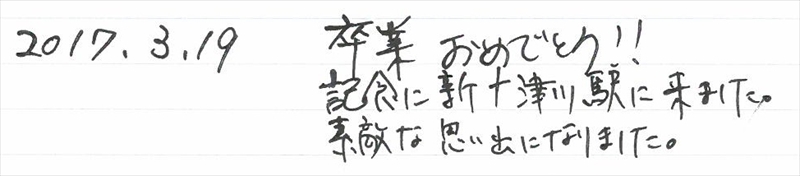 2017.3.19 卒業 おめでとう!!
記念に新十津川駅に来ました。
素敵な思い出になりました。